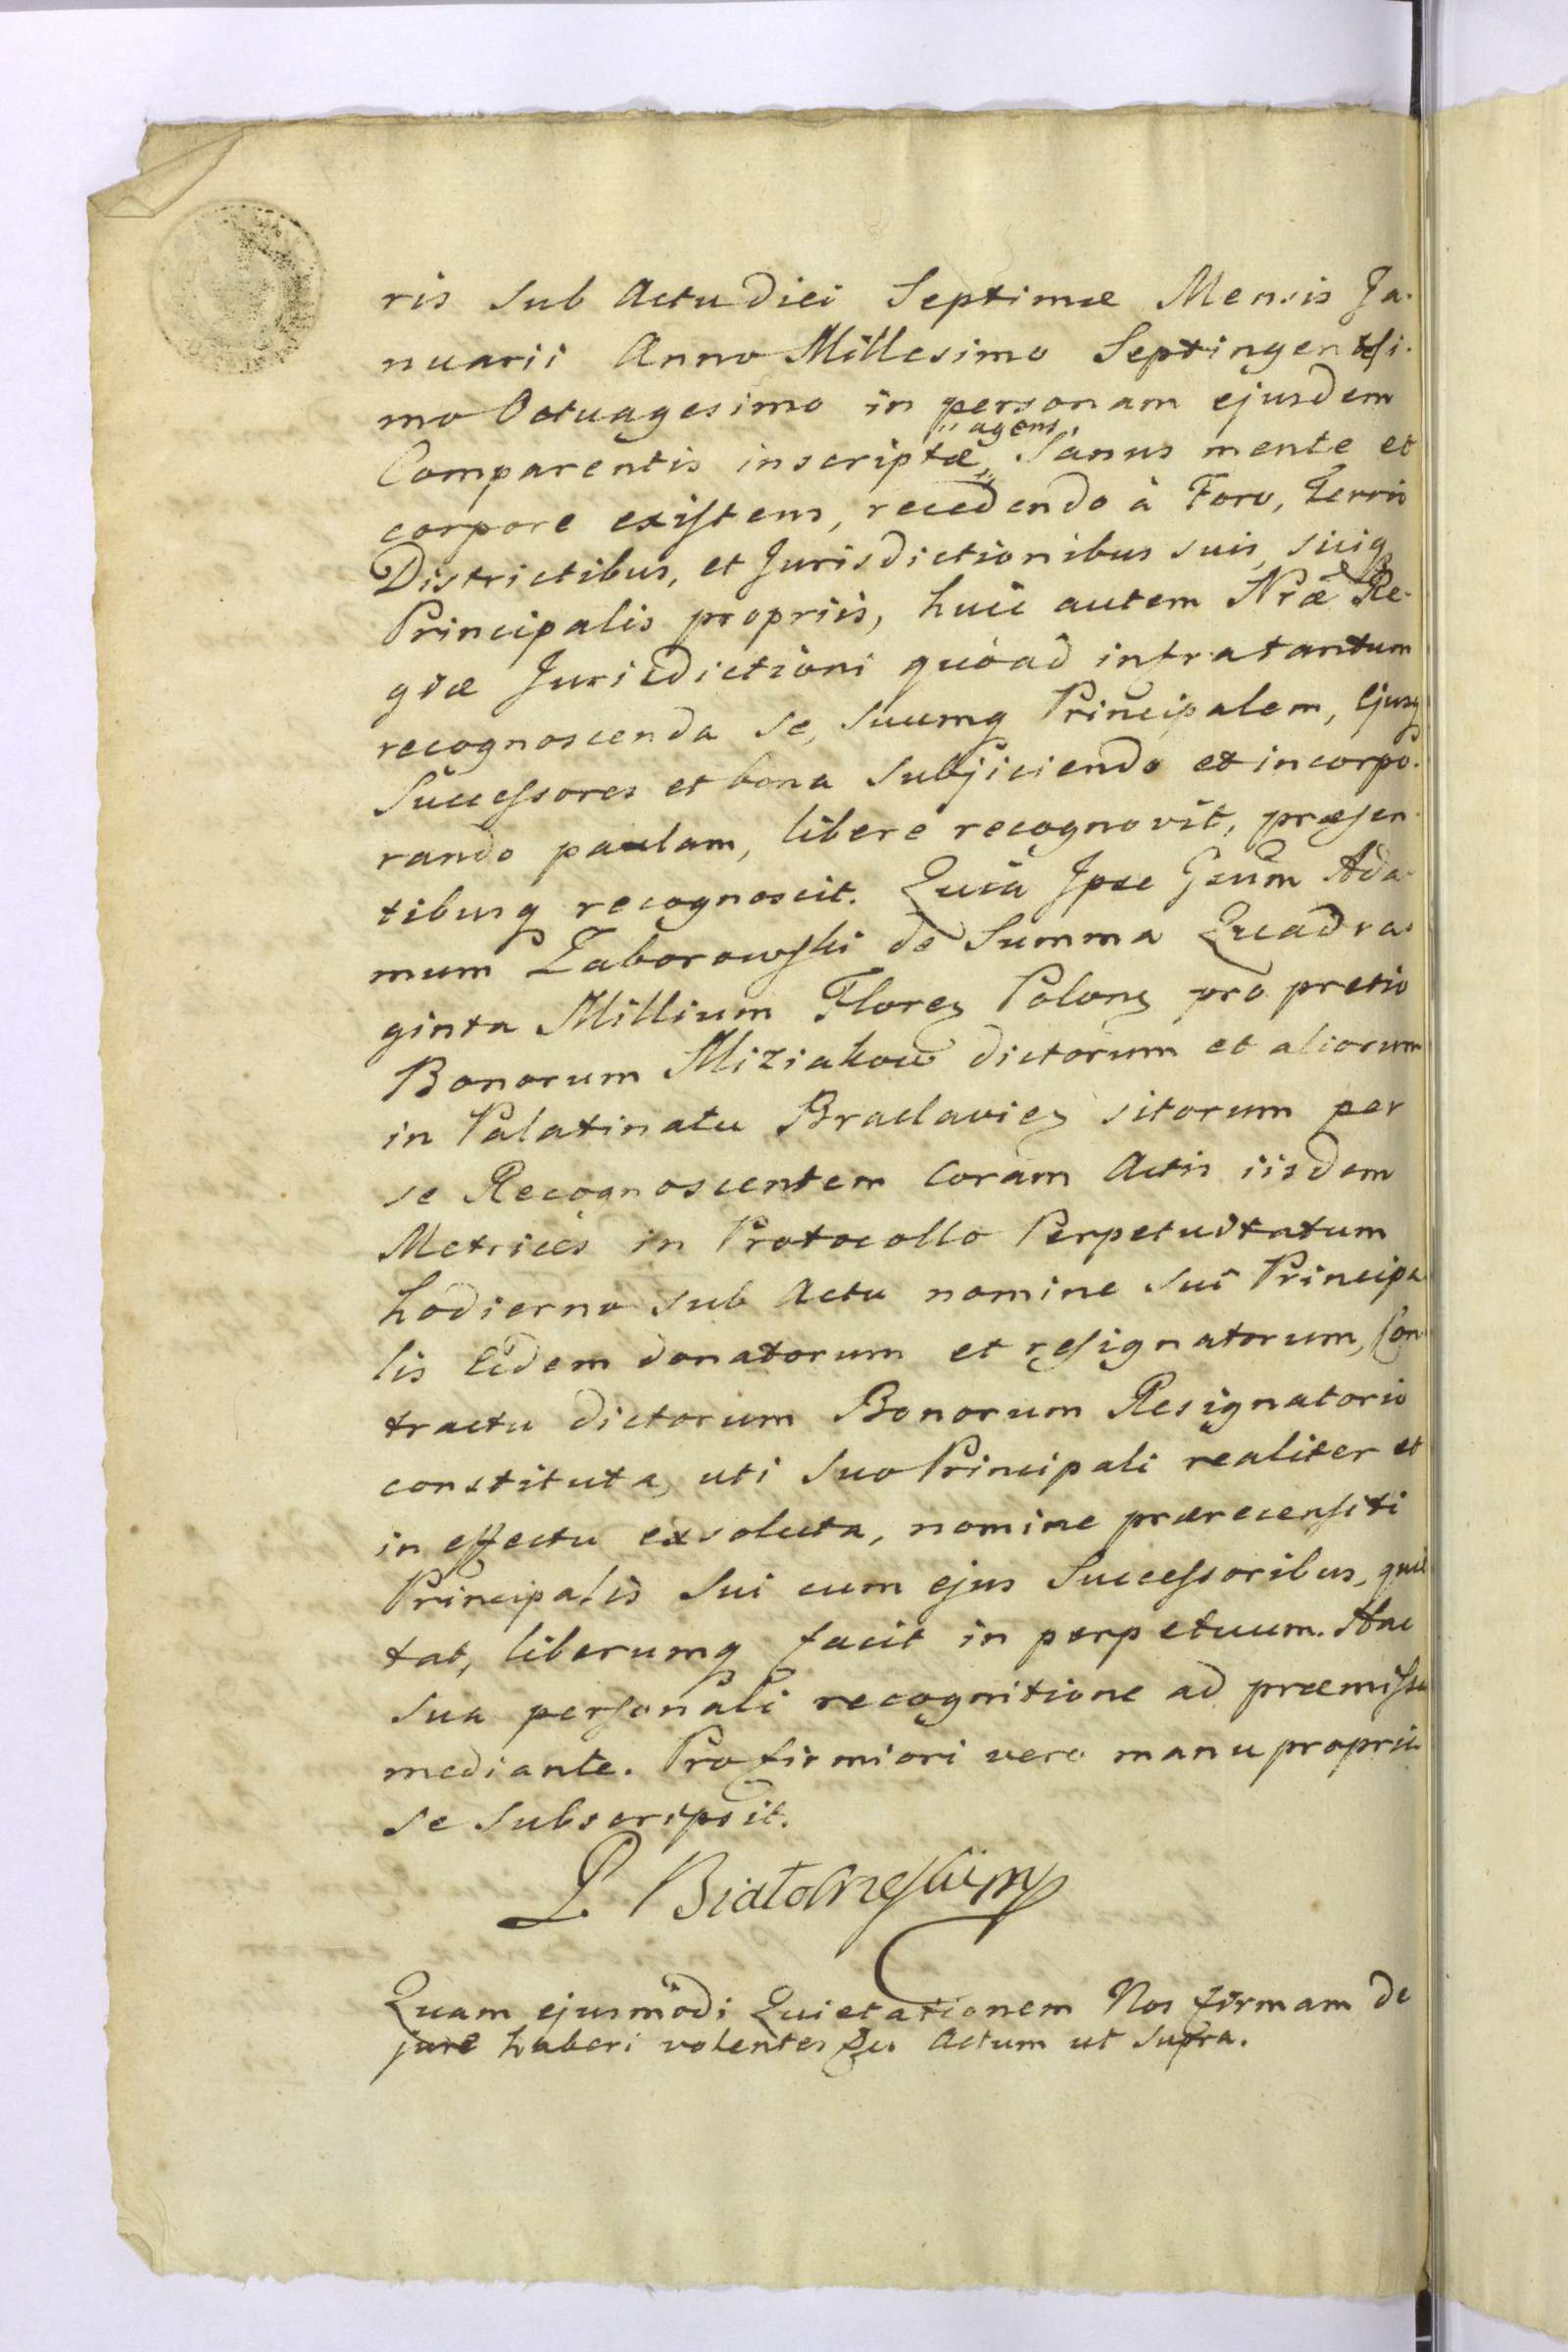 ris sub Actu Diei Septimæ Mensis Ja-
nuarii Anno Millesimo Septingentesi-
mo Octuagesimo in personam ejusdem
Comparentis inscriptæ, agens, Sanus mente et
corpore existens, recedendo à Foro, Terris
Districtibus, et Jurisdictionibus suis, suiq
Principalis propriis, huic autem Nræ Re-
giæ Jurisdictioni quoad infra tantum
recognoscenda se, suumq Principalem, Ejusq
Successores et bona subjiciendo et incorpo-
rando palam, libere recognovit, præsen-
tibusq recognoscit. Quia Ipse Gsum Ada-
mum Zaborowski de Summa Quadra-
ginta Millium Floren Polon pro pretio
Bonorum Miziakow dictorum et aliorum
in Palatinatu Braclavien sitorum per
se Recognoscentem Coram Actis iisdem
Metrices in Protocollo Perpetuitatum
hodierno sub Actu nomine sui Principa
lis Eidem donatorum et resignatorum, Con
tractu dictorum Bonorum Resignatorio
constituta, uti suo Principali realiter et
in effectu exsoluta, nomine prærecensiti
Principalis sui cum ejus Successoribus, quie
tat, liberumq facit in perpetuum. Hac
sua personali recognitione ad præmissa
mediante. Pro firmiori vero manu propria
se subscripsit.
Białobrzeski mp
Quam ejusmodi Quietationem Nos firmam de
jure haberi volentes Actum ut supra.